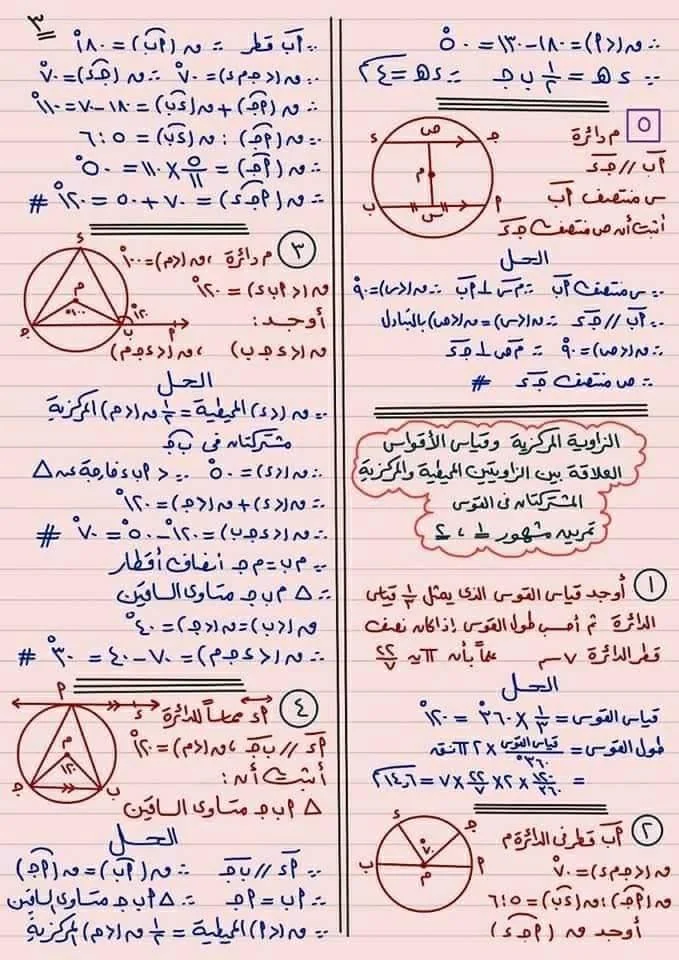 ∴ ق(د م) = ١٨٠ - ١٣٠ = ٥٠°
∵ د هـ = ½ ب جـ ∴ د هـ = ٤ سم
٥
م دائرة
أب // جـ د
س منتصف أب
أثبت أن ص منتصف جـ د
ص
جـ
د
م
أ
ب
س
الحل
∵ س منتصف أب ∴ م س ⊥ أب ∴ ق(د س) = ٩٠°
∵ أب // جـ د ∴ ق(د س) = ق(د ص) بالتبادل
∴ ق(د ص) = ٩٠° ∴ م ص ⊥ جـ د
∴ ص منتصف جـ د #
الزاوية المركزية وقياس الأقواس
العلاقة بين الزاويتين المحيطية والمركزية
المشتركتان فى القوس
تمرين مشهور ١ ، ٢
١ أوجد قياس القوس الذى يمثل ⅓ قياس
الدائرة ثم أحسب طول القوس إذا كان نصف
قطر الدائرة ٧ سم علماً بأن π = ٢٢/٧
الحل
قياس القوس = ⅓ × ٣٦٠° = ١٢٠°
طول القوس = قياس القوس/٣٦٠° × ٢ π نق
= ١٢٠/٣٦٠ × ٢ × ٢٢/٧ × ٧ = ١٤,٦ سم
٢ أب قطر فى الدائرة م
ق(د جـ م د) = ٧٠°
ق(أجـ) : ق(د ب) = ٥ : ٦
أوجد ق(أجـ د)
جـ
د
٧٠°
م
أ
ب
٣
∵ أب قطر ∴ ق(أب) = ١٨٠°
∵ ق(د جـ م د) = ٧٠° ∴ ق(جـ د) = ٧٠°
∴ ق(أجـ) + ق(د ب) = ١٨٠ - ٧٠ = ١١٠°
∵ ق(أجـ) : ق(د ب) = ٥ : ٦
∴ ق(أجـ) = ٥/١١ × ١١٠ = ٥٠°
∴ ق(أجـ د) = ٧٠ + ٥٠ = ١٢٠° #
٣ م دائرة ، ق(د م) = ١٠٠°
ق(د أ ب د) = ١٢٠°
أوجد :
ق(د د جـ ب) ، ق(د د جـ م)
د
م
١٠٠°
١٢٠°
جـ
ب
أ
الحل
∵ ق(د د) المحيطية = ½ ق(د م) المركزية
مشتركتان فى ب جـ
∴ ق(د د) = ٥٠° ∵ د أ ب د خارجة عن △
∴ ق(د د) + ق(د جـ) = ١٢٠°
∴ ق(د د جـ ب) = ١٢٠° - ٥٠° = ٧٠° #
∵ م ب = م جـ أنصاف أقطار
∴ △ م ب جـ متساوى الساقين
ق(د ب) = ق(د جـ) = ٤٠°
∴ ق(د د جـ م) = ٧٠ - ٤٠ = ٣٠° #
٤ أد مماساً للدائرة
أد // ب جـ ، ق(د م) = ١٢٠°
أثبت أن :
△ أ ب جـ متساوى الساقين
أ
د
م
١٢٠
جـ
ب
الحل
∵ أد // ب جـ ∴ ق(أب) = ق(أجـ)
∴ أب = أجـ ∴ △ أ ب جـ متساوى الساقين
∵ ق(د أ) المحيطية = ½ ق(د م) المركزية